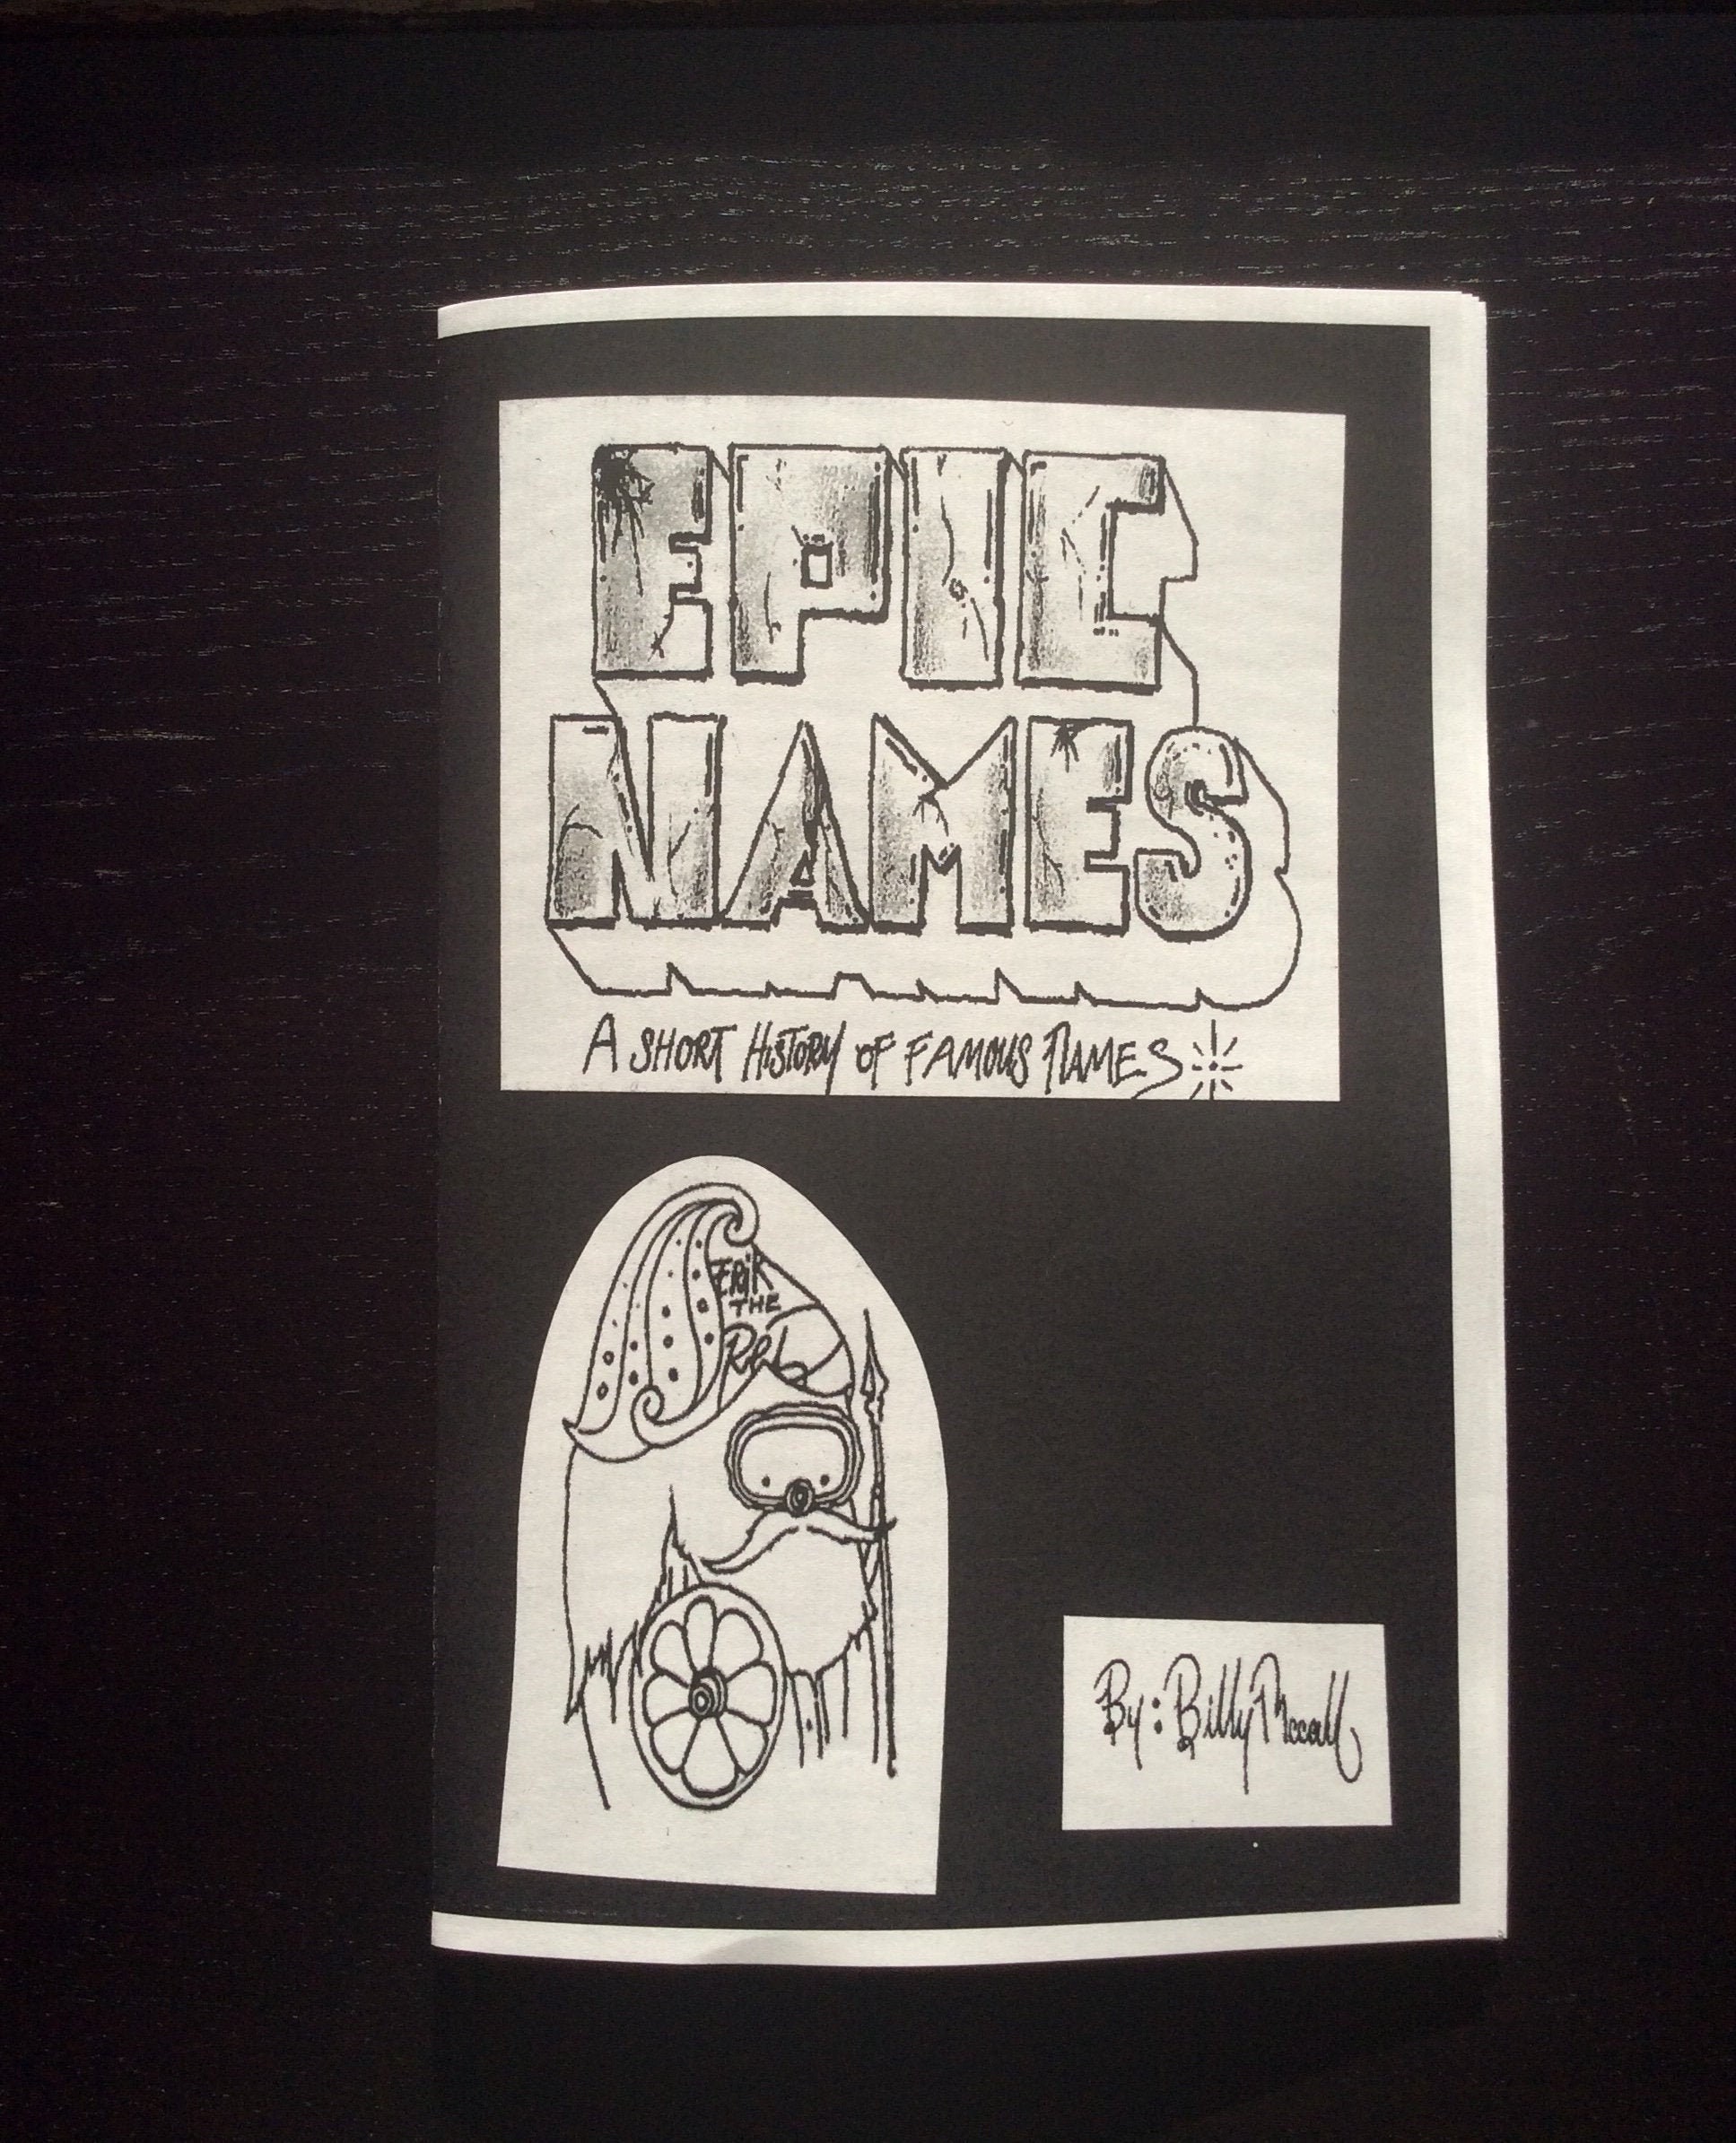 EPIC
NAMES
A SHORT HISTORY OF FAMOUS NAMES
ERIK
THE
Red
By: Billy Mccall